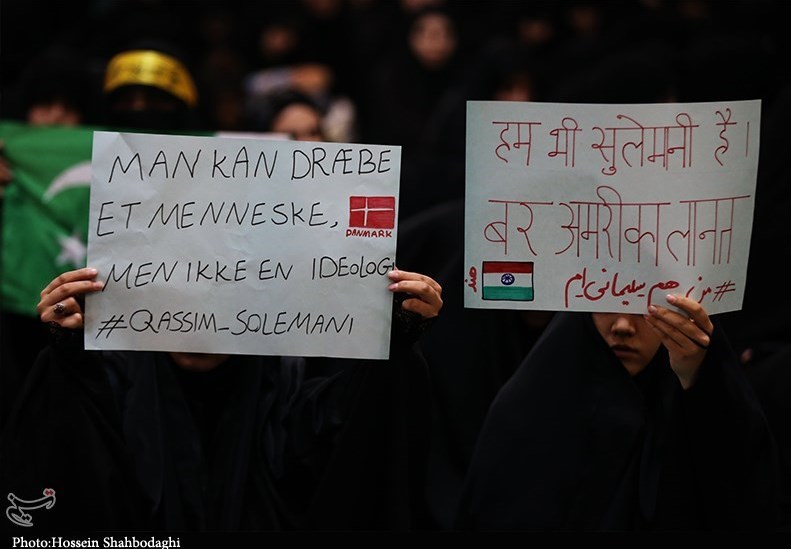 MAN KAN DRÆBE
ET MENNESKE,
DANMARK
MEN IKKE EN IDEOLOGI
#QASSIM_SOLEMANI
हम भी सुलेमनी है।
बर अमरीका लानत
هند
#من_هم_سلیمانی_ام
تسنیم
Photo:Hossein Shahbodaghi